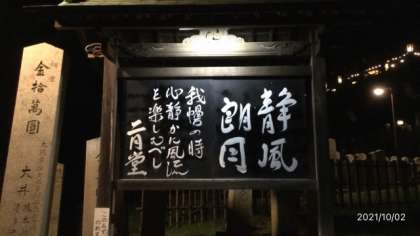 静風
朗月
我慢の時
心静かに風流
を楽しむべし
二月堂
金拾萬圓
大井
2021/10/02